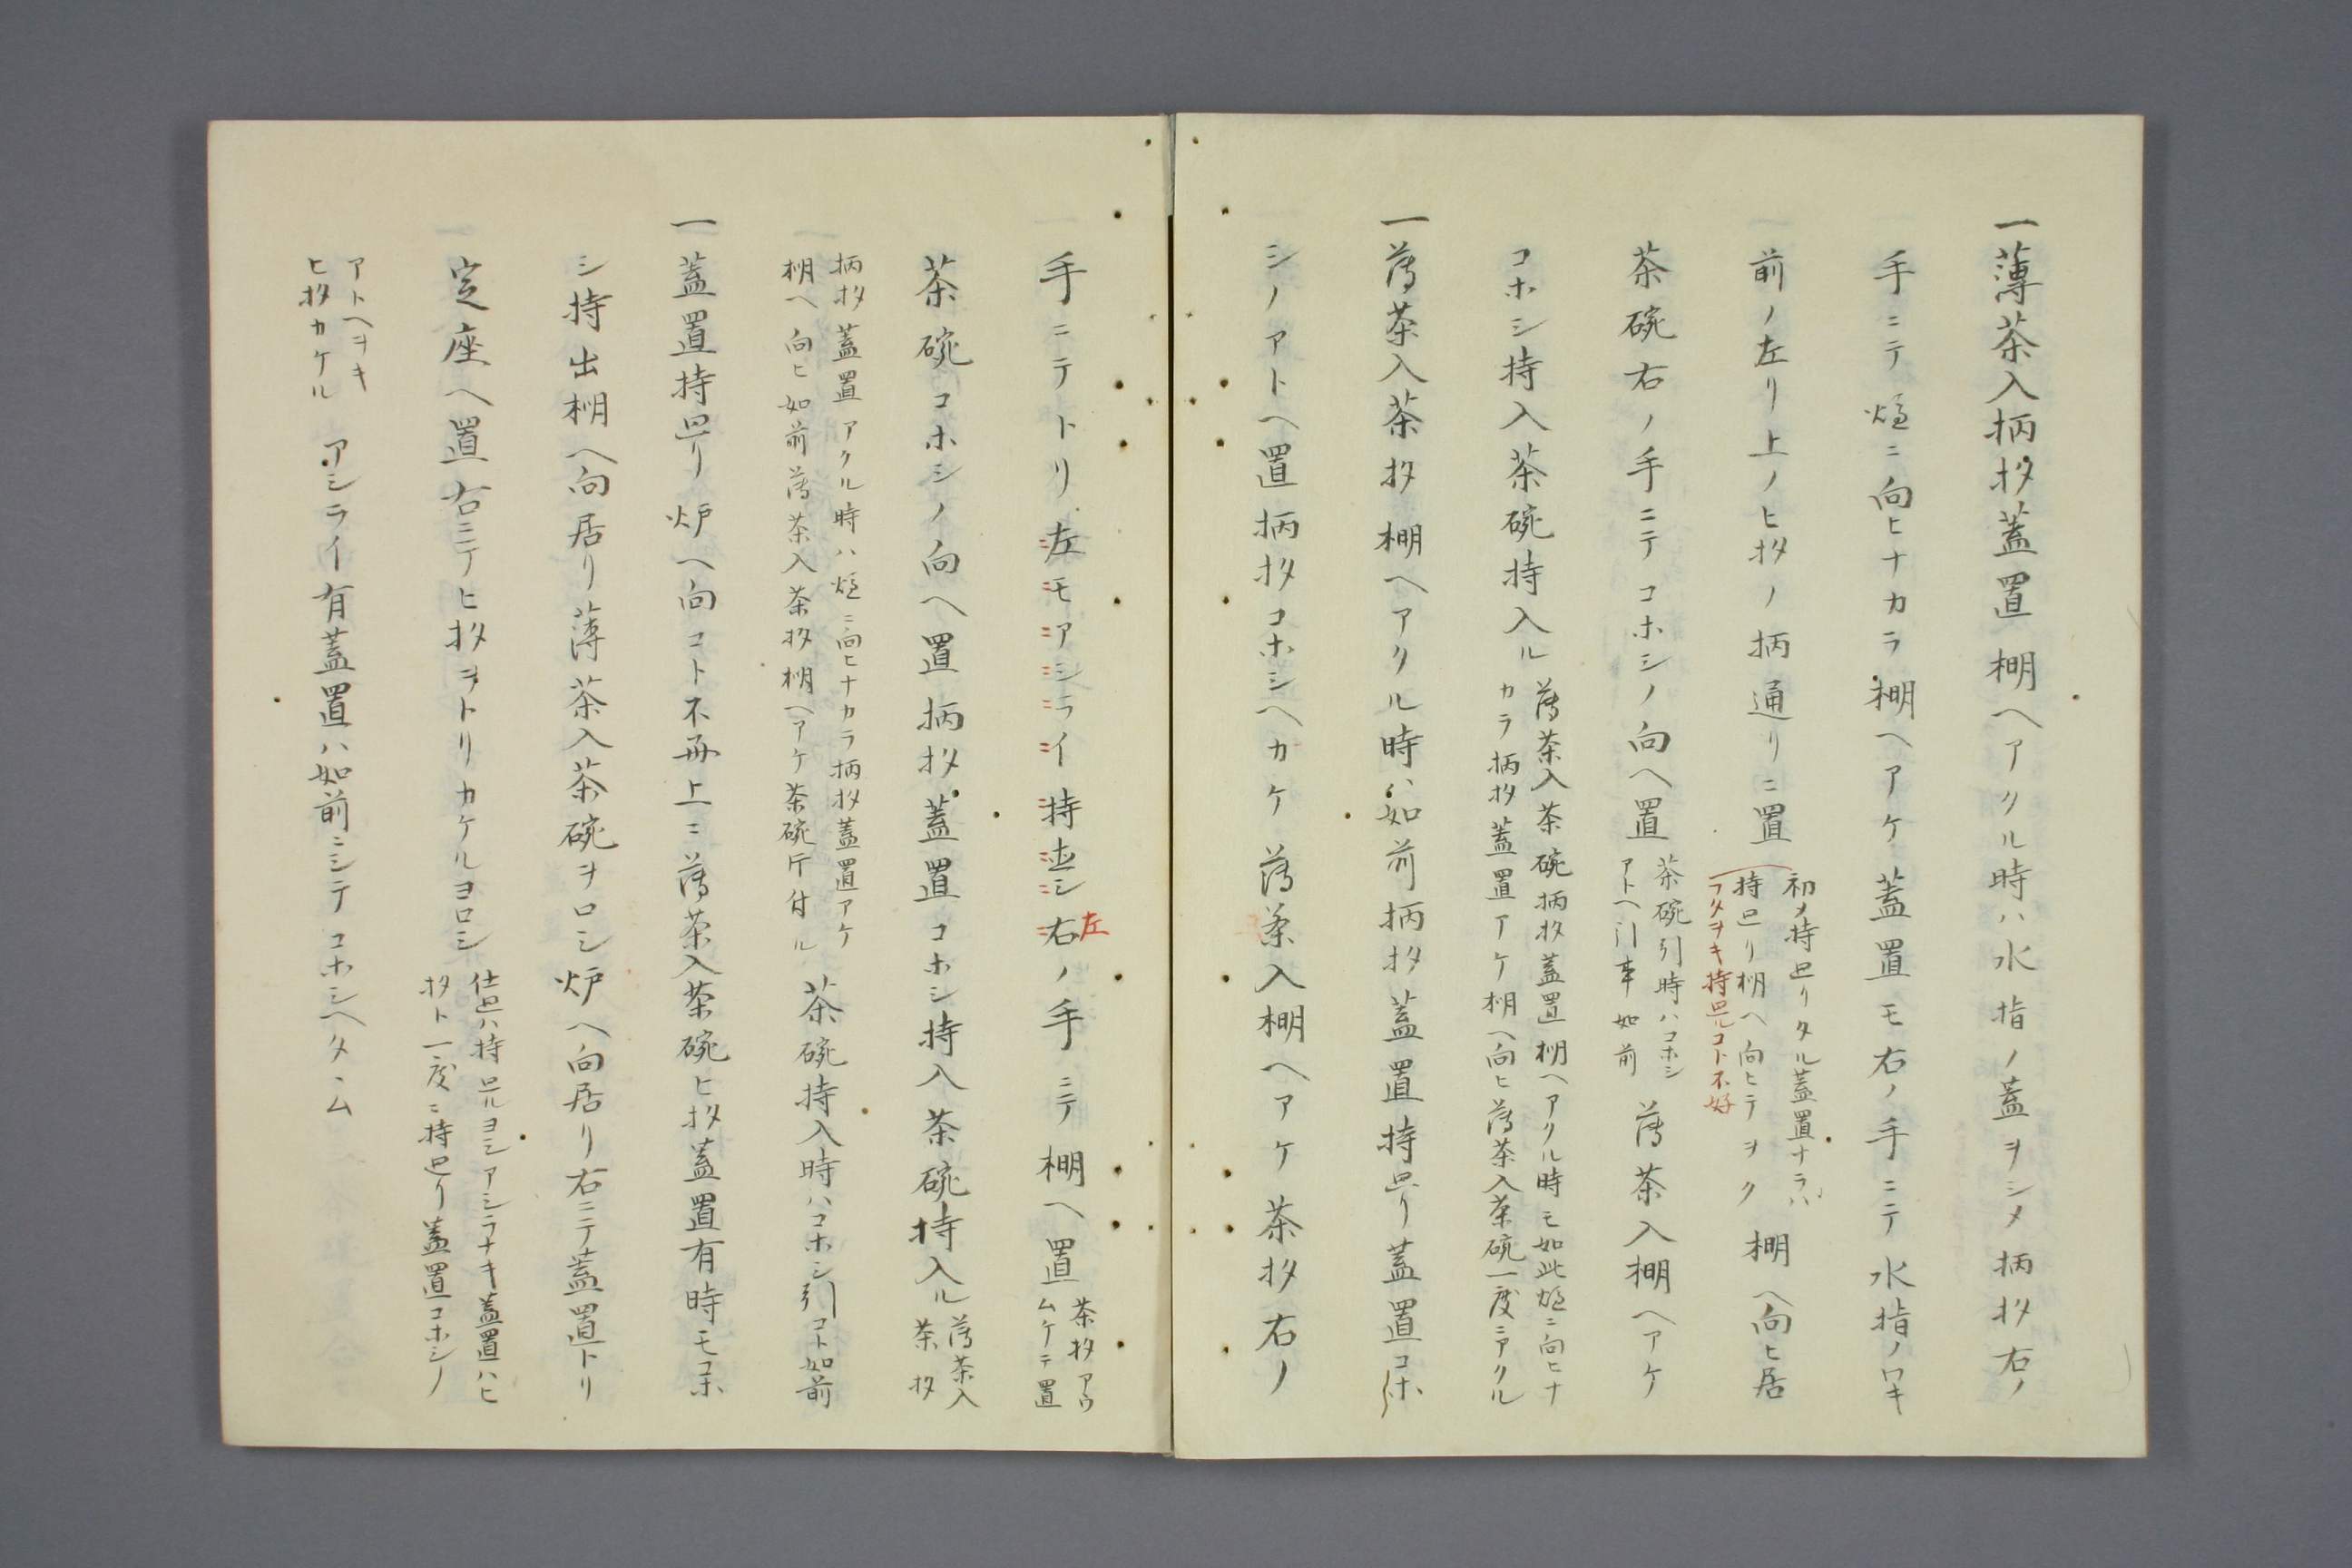 一薄茶入柄杓蓋置棚ヘアクル時ハ水指ノ蓋ヲシメ柄杓右ノ
手ニテ爐ニ向ヒナカラ棚ヘアケ蓋置モ右ノ手ニテ水指ノワキ
前ノ左リ上ノヒ杓ノ柄通リニ置
初メ持出リタル蓋置ナラハ
持出リ棚ヘ向ヒテヲク
フタヲキ持出ルコト不好
棚ヘ向ヒ居
茶碗右ノ手ニテコホシノ向ヘ置
茶碗引時ハコホシ
アトヘ引事如前
薄茶入棚ヘアケ
コホシ持入茶碗持入ル
薄茶入茶碗柄杓蓋置棚ヘアクル時モ如此爐ニ向ヒナ
カラ柄杓蓋置アケ棚ヘ向ヒ薄茶入茶碗一度ニアクル
一薄茶入茶杓棚ヘアクル時ハ如前柄杓蓋置持出リ蓋置コホ
シノアトヘ置柄杓コホシヘカケ薄茶入棚ヘアケ茶杓右ノ
手ニテトリ左モアシライ持直シ右ノ手ニテ棚ヘ置
左
茶杓アウ
ムケテ置
茶碗コホシノ向ヘ置柄杓蓋置コホシ持入茶碗持入ル
薄茶入
茶杓
柄杓蓋置アクル時ハ爐ニ向ヒナカラ柄杓蓋置アケ
棚ヘ向ヒ如前薄茶入茶杓棚ヘアケ茶碗斤付ル
茶碗持入時ハコホシ引コト如前
一蓋置持出リ炉ヘ向コト不再上ニ薄茶入茶碗ヒ杓蓋置有時モコホ
シ持出棚ヘ向居リ薄茶入茶碗ヲロシ炉ヘ向居リ右ニテ蓋置トリ
定座ヘ置右ニテヒ杓ヲトリカケルヨロシ
仕出ハ持出ルヨシアシラナキ蓋置ハヒ
杓ト一度ニ持出リ蓋置コホシノ
アトヘヲキ
ヒ杓カケル
アシライ有蓋置ハ如前ニシテコホシヘタヽム